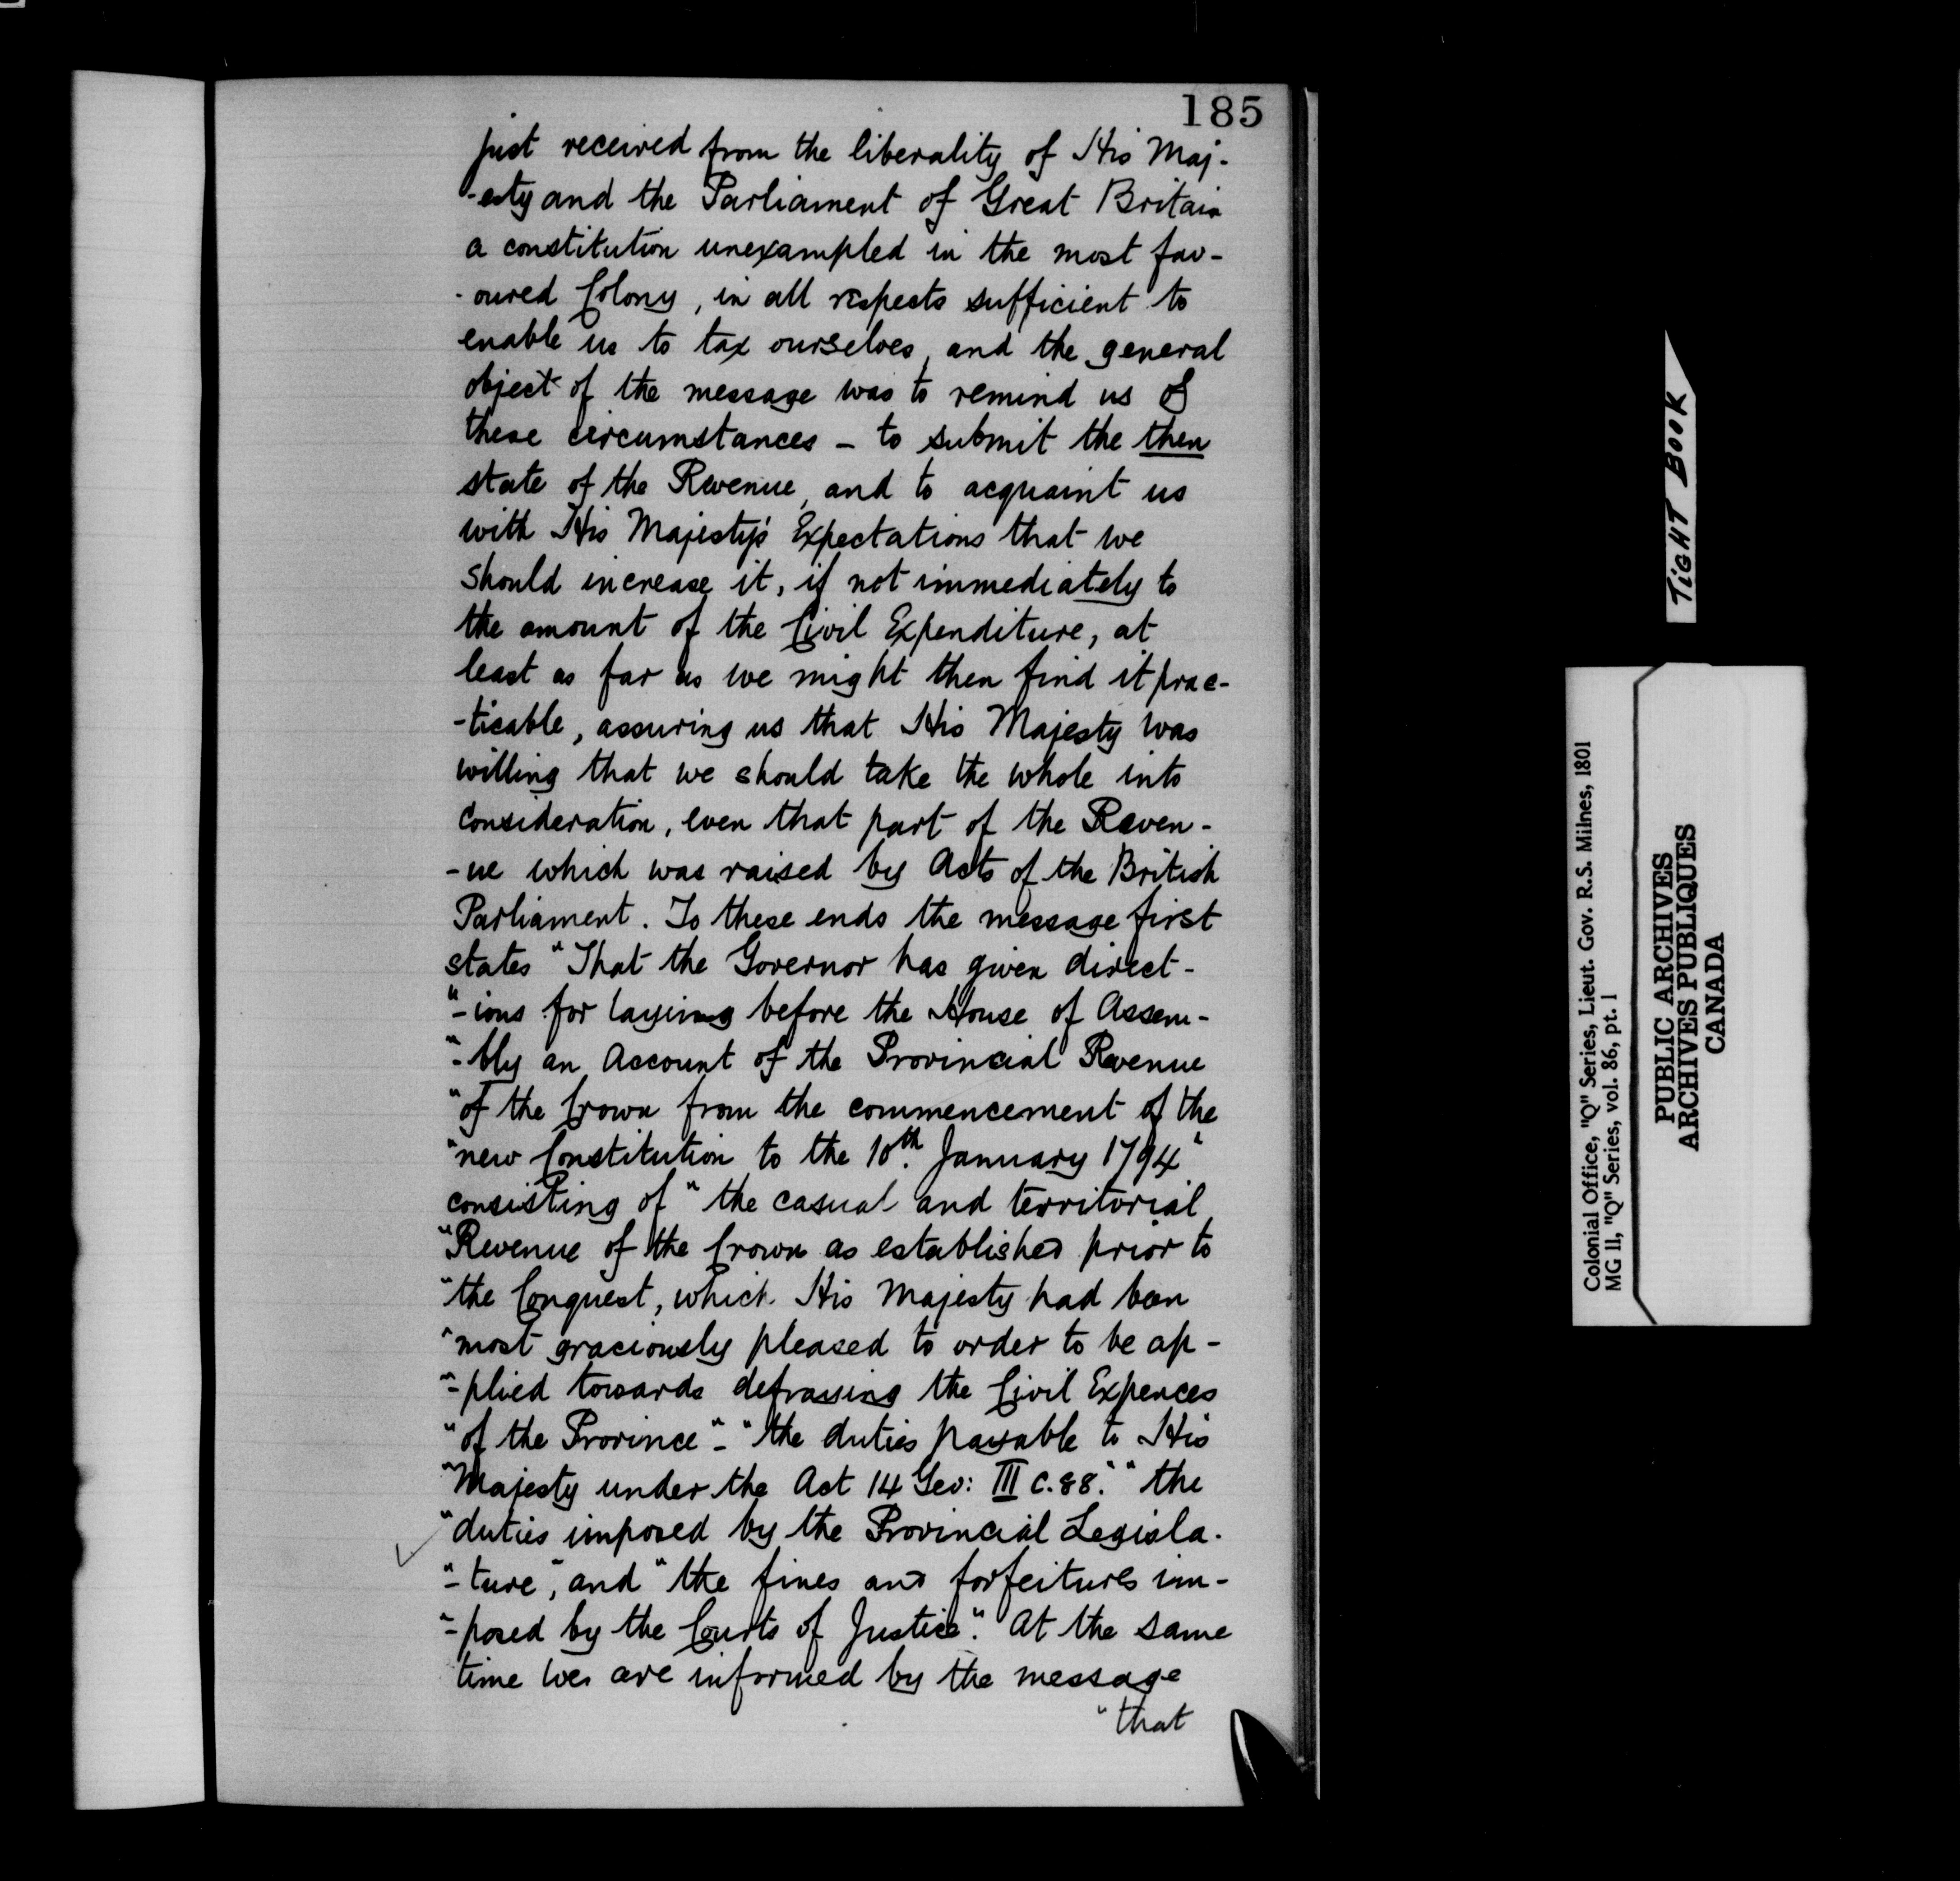 185
just received from the liberality of His Maj-
-esty and the Parliament of Great Britain
a constitution unexampled in the most fav-
-oured Colony, in all respects sufficient to
enable us to tax ourselves, and the general
object of the message was to remind us of
these circumstances - to submit the then
state of the Revenue, and to acquaint us
with His Majesty's Expectations that we
should increase it, if not immediately to
the amount of the Civil Expenditure, at
least as far as we might then find it prac-
-ticable, assuring us that His Majesty was
willing that we should take the whole into
consideration, even that part of the Reven-
-ue which was raised by Acts of the British
Parliament. To these ends the message first
states "That the Governor has given direct-
"-ions for laying before the House of Assem-
"-bly an Account of the Provincial Revenue
"of the Crown from the commencement of the
"new Constitution to the 10th. January 1794"
consisting of "the casual and territorial
"Revenue of the Crown as established prior to
"the Conquest, which His Majesty had been
"most graciously pleased to order to be ap-
"-plied towards defraying the Civil Expences
"of the Province"-"the duties payable to His
"Majesty under the Act 14 Geo: III c.88." "the
"duties imposed by the Provincial Legisla-
"-ture", and "the fines and forfeitures im-
"-posed by the Courts of Justice". At the same
time we are informed by the message
"that
TiGHT BOOK
Colonial Office, "Q" Series, Lieut. Gov. R.S. Milnes, 1801
MG 11, "Q" Series, vol. 86, pt. 1
PUBLIC ARCHIVES
ARCHIVES PUBLIQUES
CANADA